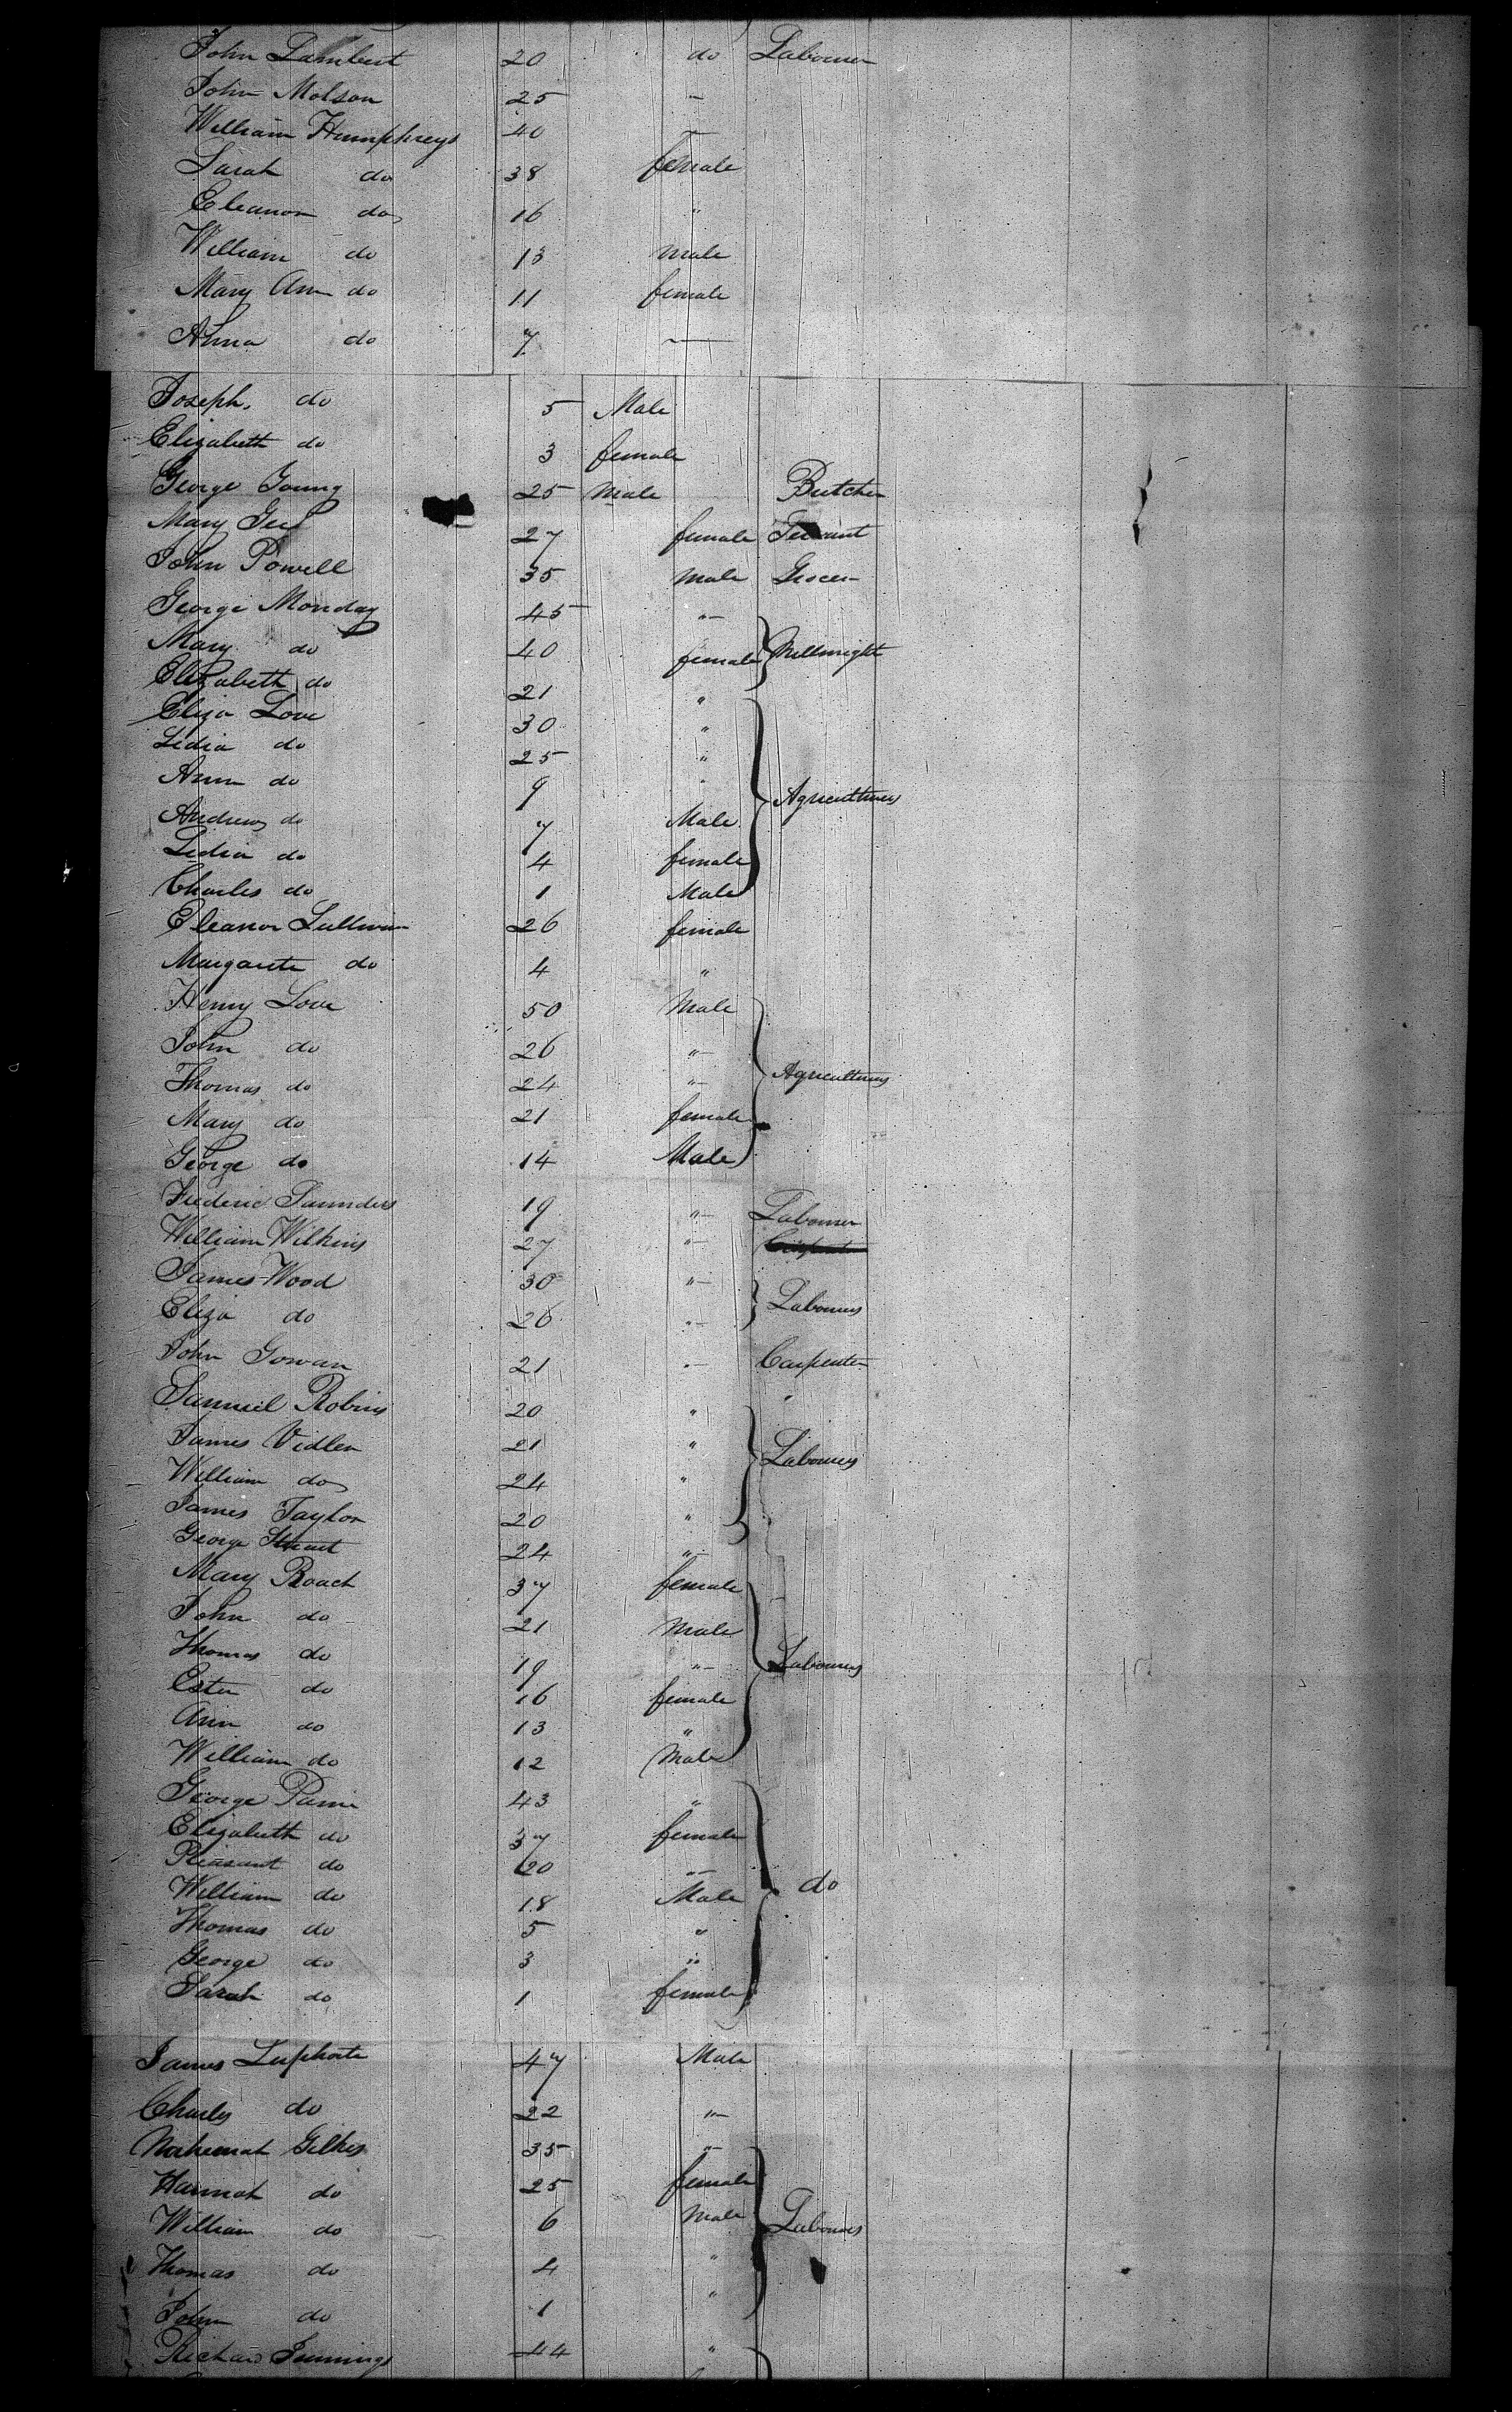 John Lambert 20 do Labourer
John Molson 25 —
William Humphreys 40 —
Sarah do 38 female
Eleanor do 16 "
William do 13 male
Mary Ann do 11 female
Anna do 7 —
Joseph. do 5 Male
Elizabeth do 3 female
George Young 25 Male Butcher
Mary 27 female Servant
John Powell 35 male Grocer
George Monday 45 "
Mary do 40 female Millwright
Elizabeth do 21 "
Eliza Love 30 "
Lidia do 25 "
Ann do 9 "
Agriculturers
Andrew do 7 Male
Lidia do 4 female
Charles do 1 Male
Eleanor Sullivan 26 female
Margarete do 4 "
Henry Love 50 Male
John do 26 "
Thomas do 24 " Agriculturers
Mary do 21 female
George do 14 Male
Frederic Saunders 19 " Labourer
William Wilkins 27 "
James Wood 30 "
Labourers
Eliza do 26 "
John Gowan 21 " Carpenter
Samuel Robins 20 " "
James Vidler 21 " Labourers
William do 24 "
James Taylor 20 "
George Stuart 24 "
Mary Roach 37 female
John do 21 Male
Thomas do 19 " Labourers
Ester do 16 female
Ann do 13 "
William do 12 Male
George 43 "
Elizabeth do 37 female
Pleasant do 20 "
William do 18 Male do
Thomas do 5 "
George do 3 "
Sarah do 1 female
James 47 Male
Charles do 22 "
Gilkes 35 "
Hannah do 25 female
William do 6 Male Labourers
Thomas do 4 "
John do 1 "
Richard Jennings 44 "